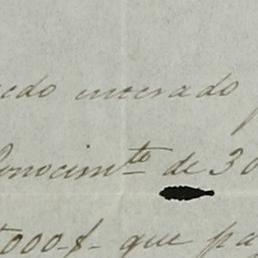 edo encerado
Conocimto de 30
000 $ que pa